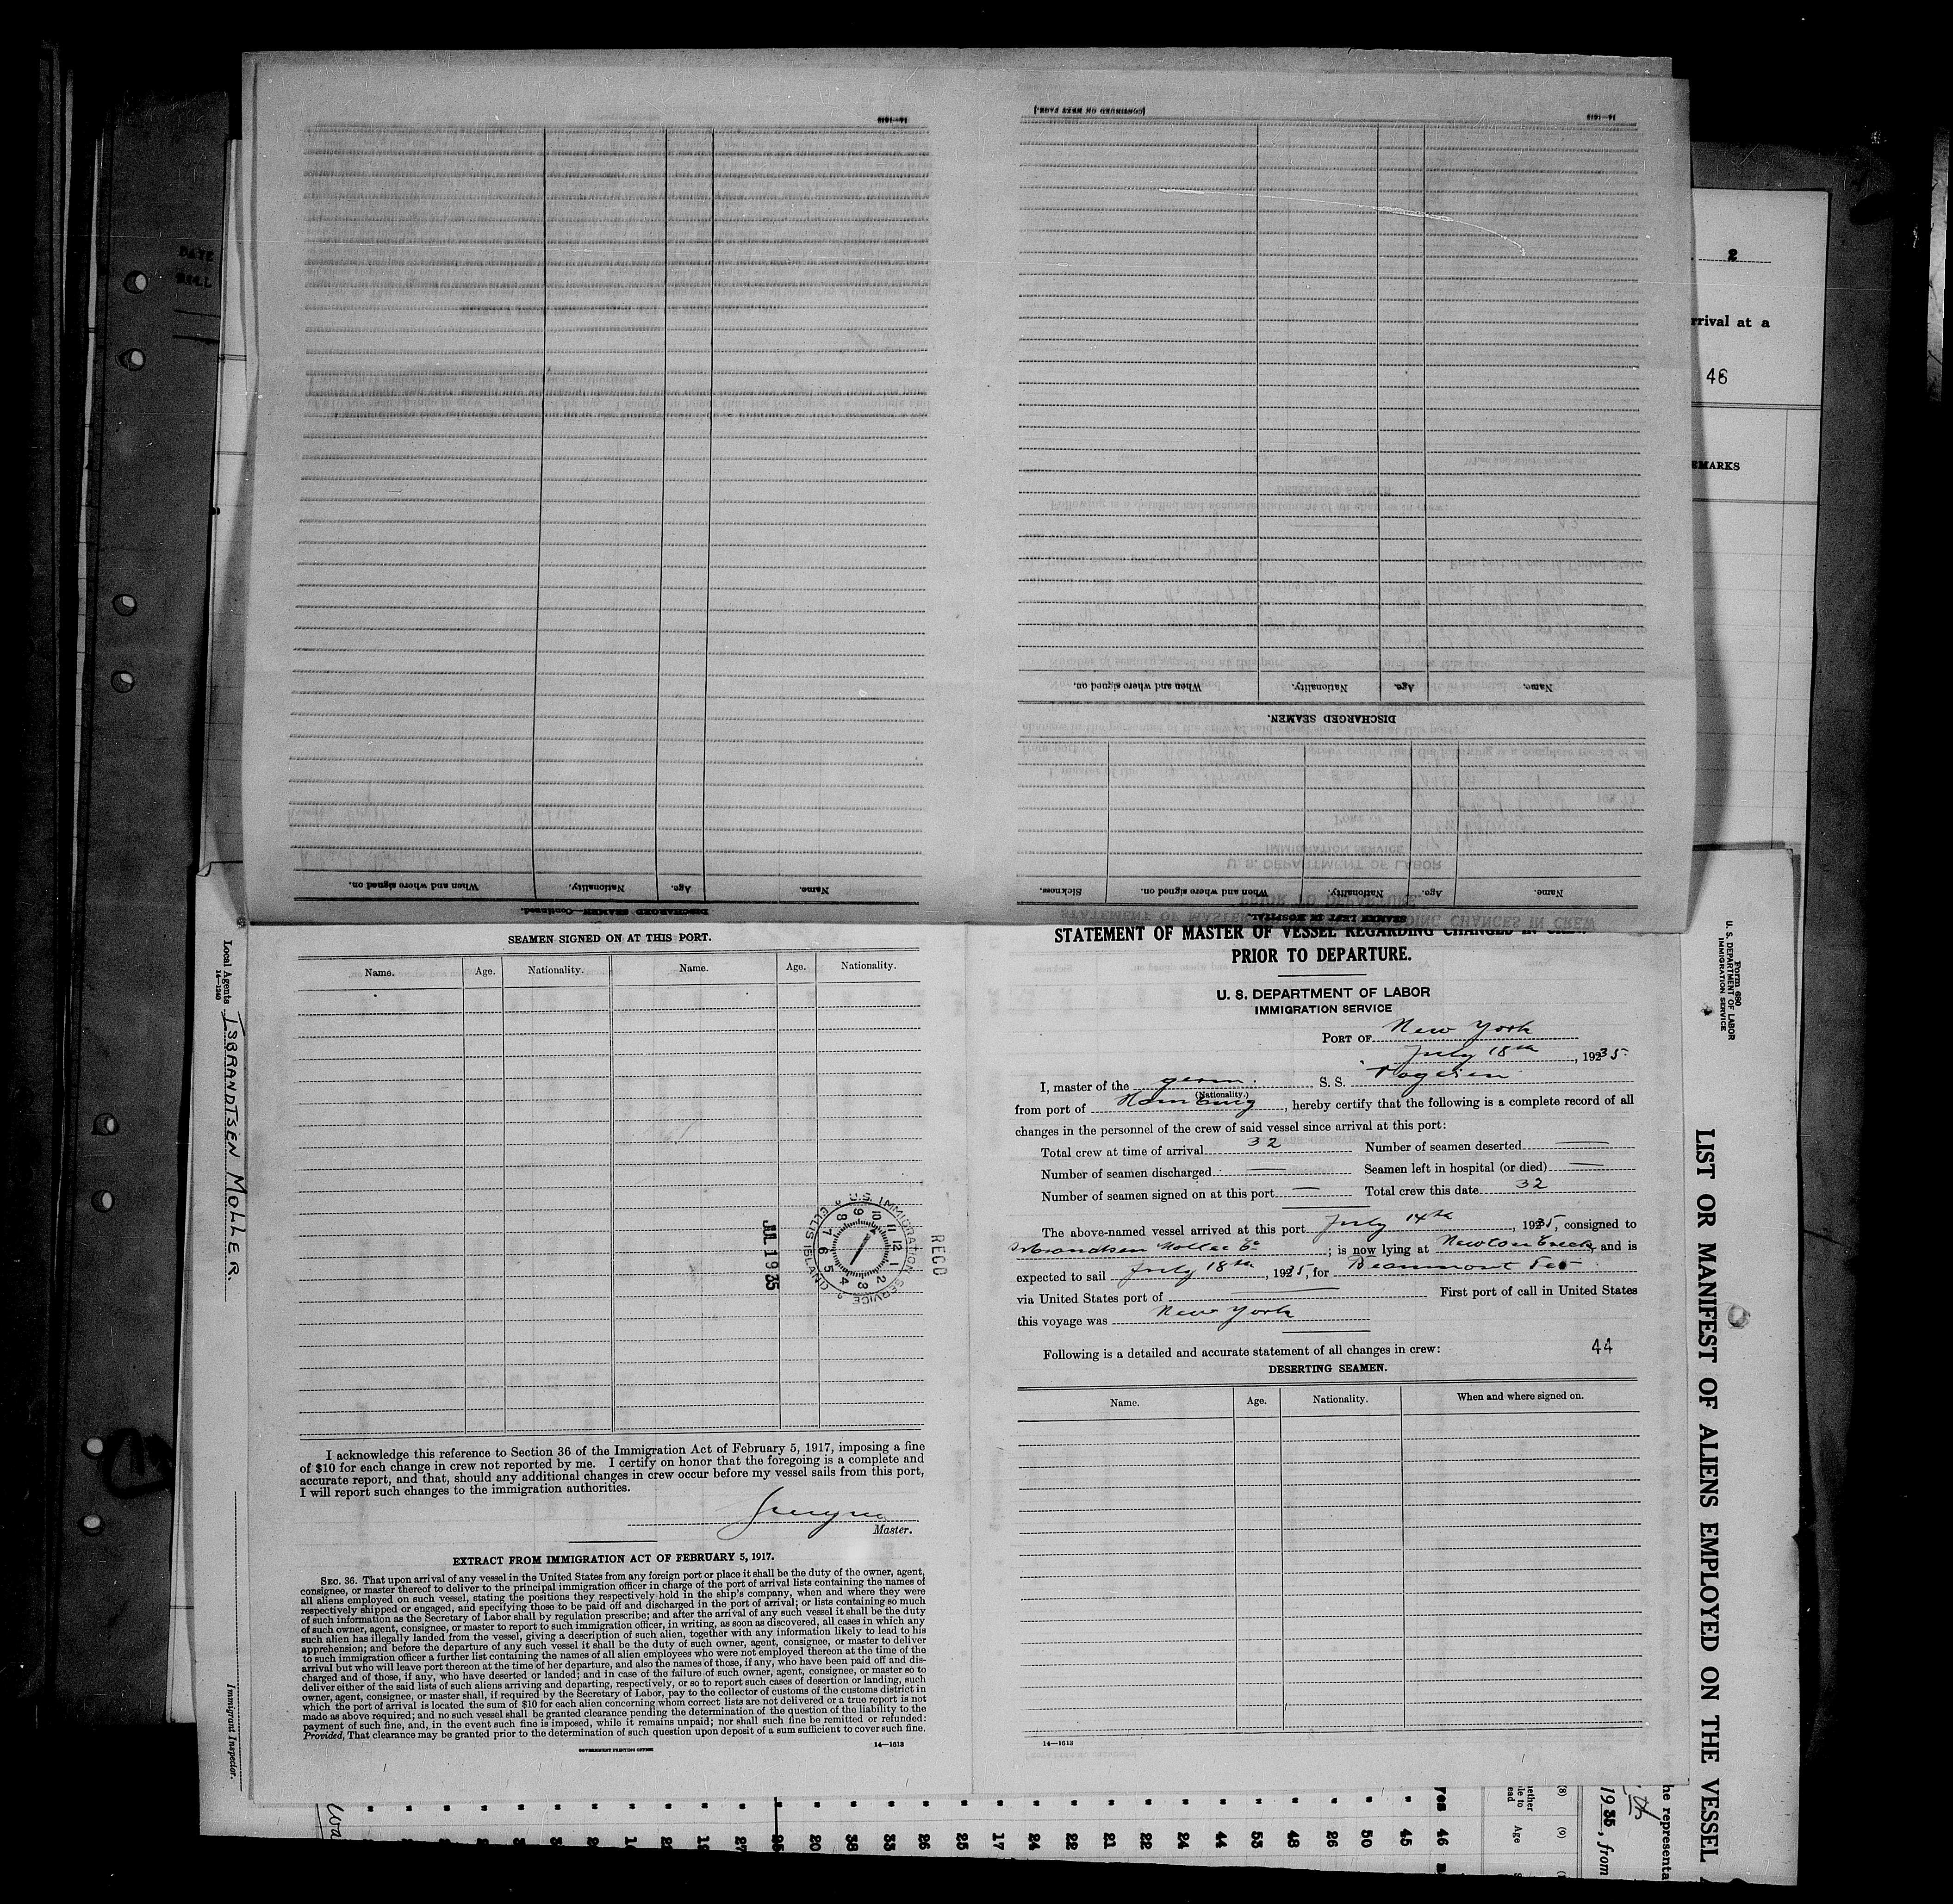 14—1613
(CONTINUED ON NEXT PAGE.)
14—1613
DATE
2
rrival at a
46
EMARKS
When and where signed on.
Nationality.
Age.
Name.
DISCHARGED SEAMEN.
Sickness.
When and where signed on.
Nationality.
Age.
Name.
SEAMEN LEFT IN HOSPITAL.
When and where signed on.
Nationality.
Age.
Name.
DISCHARGED SEAMEN—Continued.
SEAMEN SIGNED ON AT THIS PORT.
Name. Age. Nationality. Name. Age. Nationality.
RECD
U.S. IMMIGRATION SERVICE
ELLIS ISLAND
JUL 19 35
I acknowledge this reference to Section 36 of the Immigration Act of February 5, 1917, imposing a fine
of $10 for each change in crew not reported by me. I certify on honor that the foregoing is a complete and
accurate report, and that, should any additional changes in crew occur before my vessel sails from this port,
I will report such changes to the immigration authorities.
Master.
EXTRACT FROM IMMIGRATION ACT OF FEBRUARY 5, 1917.
SEC. 36. That upon arrival of any vessel in the United States from any foreign port or place it shall be the duty of the owner, agent,
consignee, or master thereof to deliver to the principal immigration officer in charge of the port of arrival lists containing the names of
all aliens employed on such vessel, stating the positions they respectively hold in the ship's company, when and where they were
respectively shipped or engaged, and specifying those to be paid off and discharged in the port of arrival; or lists containing so much
of such information as the Secretary of Labor shall by regulation prescribe; and after the arrival of any such vessel it shall be the duty
of such owner, agent, consignee, or master to report to such immigration officer, in writing, as soon as discovered, all cases in which any
such alien has illegally landed from the vessel, giving a description of such alien, together with any information likely to lead to his
apprehension; and before the departure of any such vessel it shall be the duty of such owner, agent, consignee, or master to deliver
to such immigration officer a further list containing the names of all alien employees who were not employed thereon at the time of the
arrival but who will leave port thereon at the time of her departure, and also the names of those, if any, who have been paid off and dis-
charged and of those, if any, who have deserted or landed; and in case of the failure of such owner, agent, consignee, or master so to
deliver either of the said lists of such aliens arriving and departing, respectively, or so to report such cases of desertion or landing, such
owner, agent, consignee, or master shall, if required by the Secretary of Labor, pay to the collector of customs of the customs district in
which the port of arrival is located the sum of $10 for each alien concerning whom correct lists are not delivered or a true report is not
made as above required; and no such vessel shall be granted clearance pending the determination of the question of the liability to the
payment of such fine, and, in the event such fine is imposed, while it remains unpaid; nor shall such fine be remitted or refunded:
Provided, That clearance may be granted prior to the determination of such question upon deposit of a sum sufficient to cover such fine.
GOVERNMENT PRINTING OFFICE
14—1613
STATEMENT OF MASTER OF VESSEL REGARDING CHANGES IN CREW
PRIOR TO DEPARTURE.
U. S. DEPARTMENT OF LABOR
IMMIGRATION SERVICE
PORT OF New York
July 18th, 1935.
I, master of the germ. S. S.
(Nationality.)
from port of Hamburg, hereby certify that the following is a complete record of all
changes in the personnel of the crew of said vessel since arrival at this port:
Total crew at time of arrival 32 Number of seamen deserted —
Number of seamen discharged — Seamen left in hospital (or died) —
Number of seamen signed on at this port — Total crew this date 32
The above-named vessel arrived at this port July 14th, 1935, consigned to
Isbrandtsen Moller Co ; is now lying at Newton Creek and is
expected to sail July 18th, 1935, for Beaumont
via United States port of — First port of call in United States
this voyage was New York
Following is a detailed and accurate statement of all changes in crew: 44
DESERTING SEAMEN.
Name. Age. Nationality. When and where signed on.
14—1613
Local Agents ISBRANDTSEN MOLLER.
14—1240
Immigrant Inspector.
Form 680
U. S. DEPARTMENT OF LABOR
IMMIGRATION SERVICE
LIST OR MANIFEST OF ALIENS EMPLOYED ON THE VESSEL
he representa
th
1935, from
(8) (9)
Age
27 20 38 33 26 25 17 24 22 21 22 24 44 53 48 26 50 45 46